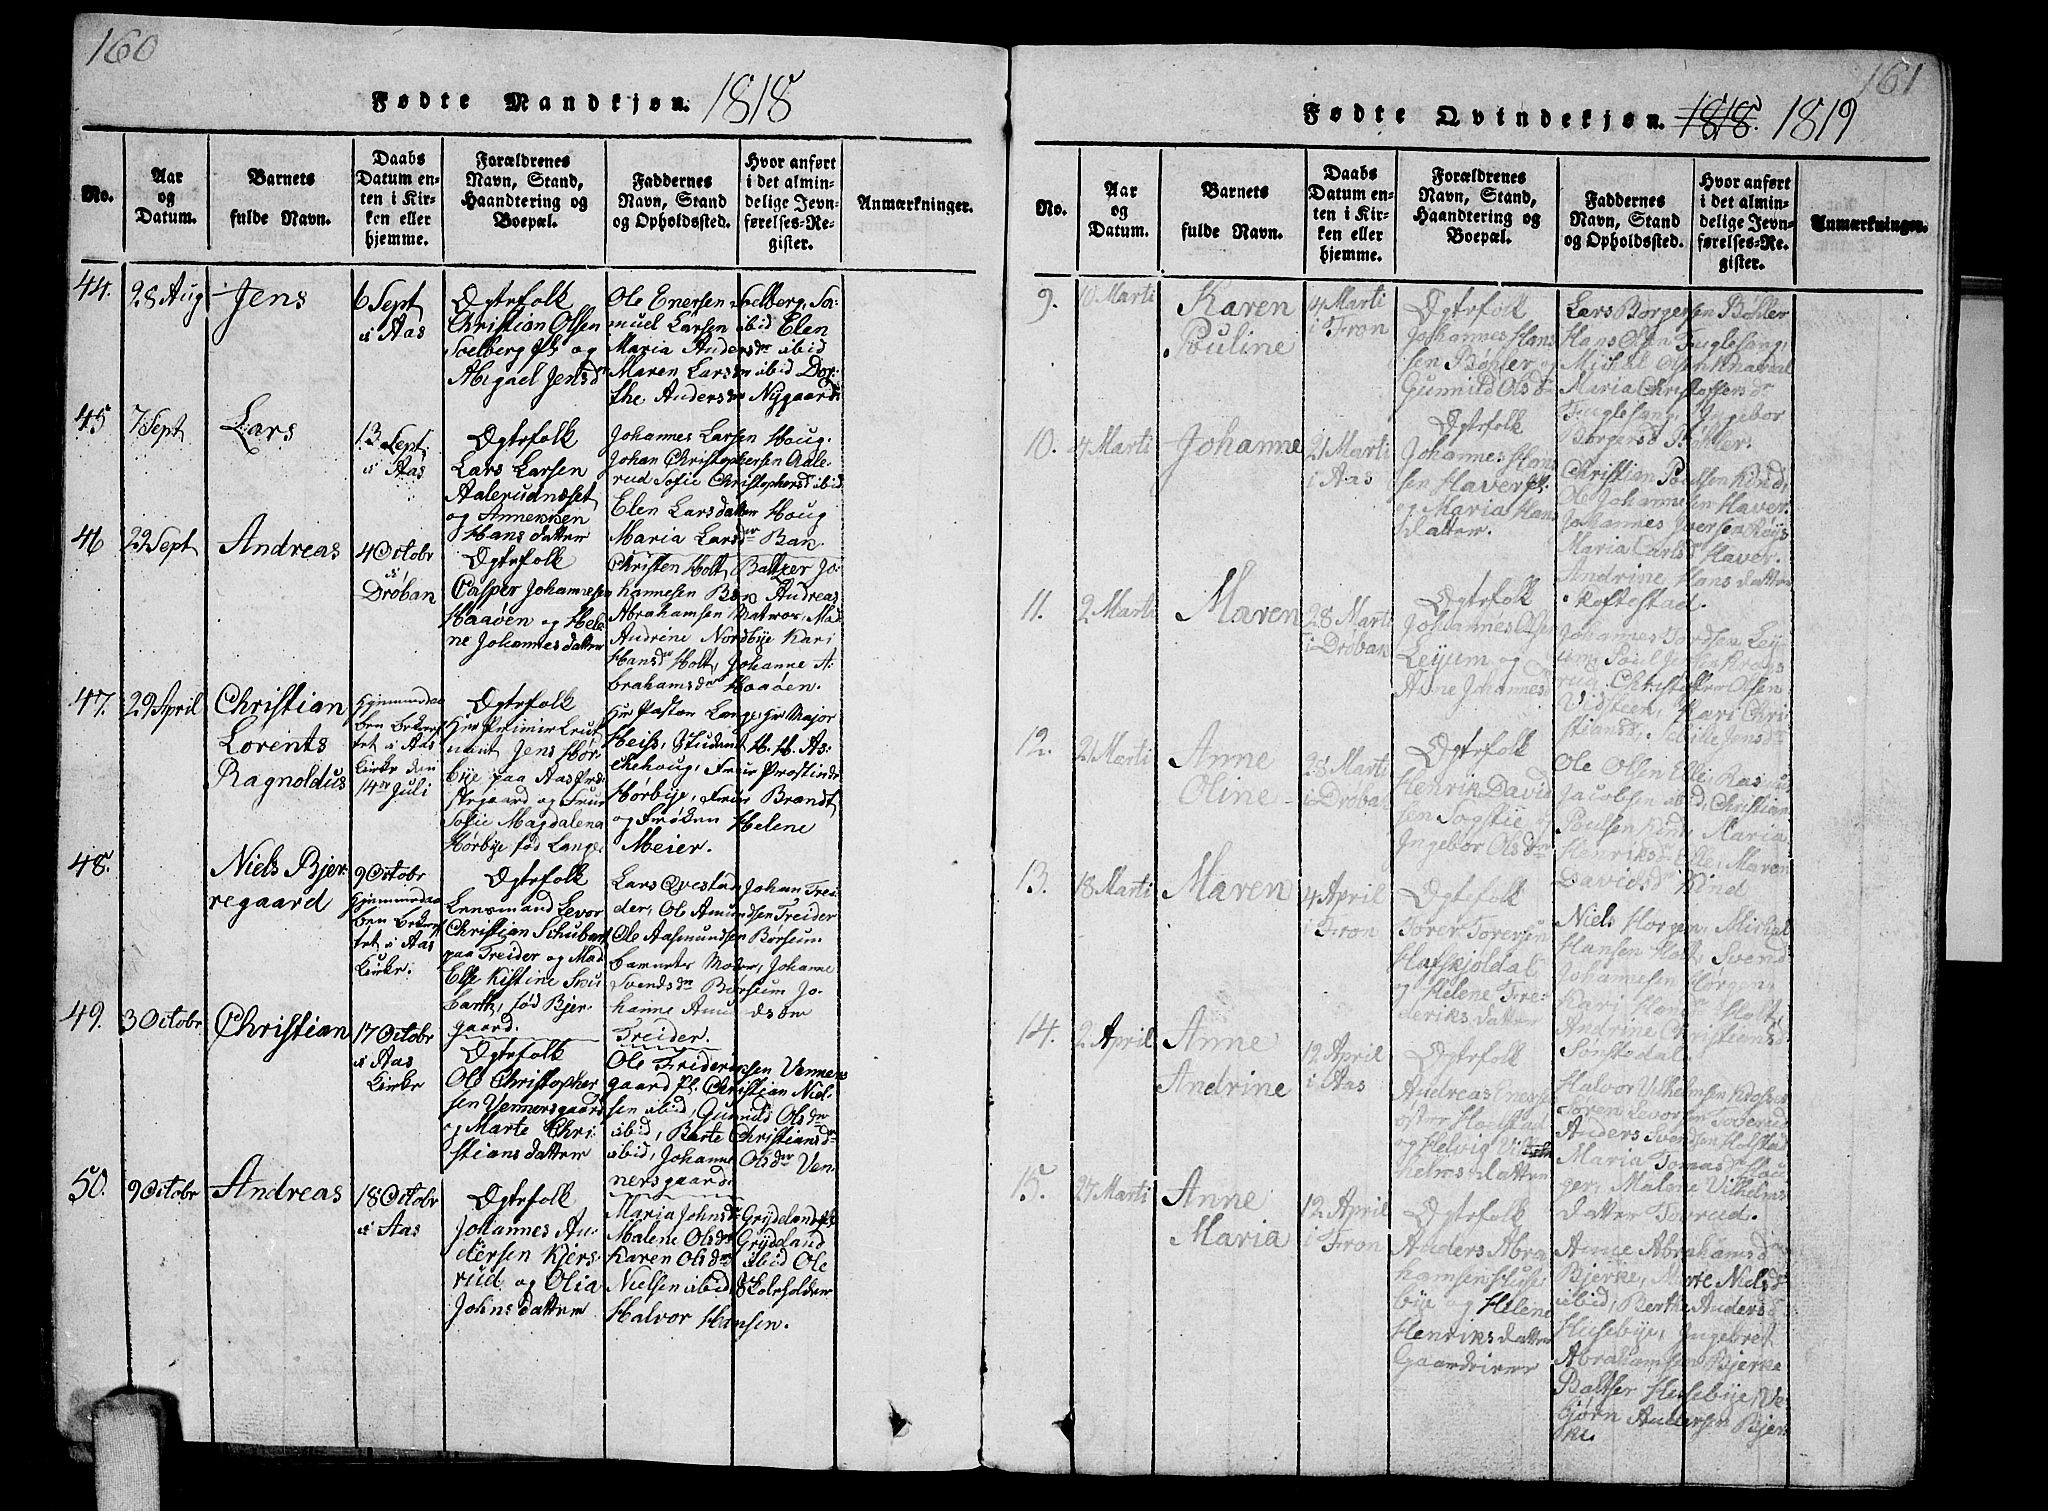 160
Fødte Mandkjøn. 1818
No.
Aar
og
Datum.
Barnets
fulde Navn.
Daabs
Datum en-
ten i Kir-
ken eller
hjemme.
Forældrenes
Navn, Stand,
Haandtering og
Boepæl.
Faddernes
Navn, Stand
og Opholdssted.
Hvor anført
i det almin-
delige Jevn-
førelses-Re-
gister.
Anmærkninger.
44. 28 Aug Jens
6 Sept
i Aas
Ægtefolk
Christian Olsen
Solberg pl. og
Abigael Jensdr
Ole Enersen Solberg, Sa-
muel Larsen ibid Elen
Maria Andersdr ibid
Maren Larsdr ibid Dor-
the Andersdr Nygaard
45 7 Sept Lars
13 Sept
i Aas
Ægtefolk
Lars Larsen
Aalerudnæset
og Annekken
Hansdatter
Johannes Larsen Houg
Johan Christophersen Aale-
rud Sofie Christophersd ibid
Elen Larsdatter Houg
Maria Larsdr Ban.
46 29 Sept Andreas
4 Octobr
i
Drøban
Ægtefolk
Casper Johannesen
Haaøen og Hele-
ne Johannesdatter
Christen Holt, Baltzer Jo-
hannesen Bøn Andreas
Abrahamsen Matros, Mad
Andrine Nordbye Kari
Hansdr Holt, Johanne A-
brahamsdr Haaøen.
47. 29 April Christian
Lorents
Ragnoldus
Hjemmedaa-
ben bekræf-
tet i Aas
Kirke den
14de Juli
Ægtefolk
Hr Premier Leut-
nant Jens Hør-
bye paa Aas Præ-
stegaard og Frue
Sofie Magdalena
Hørbye fød Lange
Hr Pastor Lange, Hr Major
Heiss, Student H. H. As-
chehoug, Frue Prostinde
Hørbye, Frue Brandt,
og Frøken Helene
Meier.
48. Niels Bjer-
regaard
9 Octobr
Hjemmedaa-
ben bekræf-
tet i Aas
Kirke.
Ægtefolk
Lensmand Levor
Christian Schubart
paa Freider og Mad
Else Kistine Scu-
barth, fød Bjer-
gaard.
Lars Qvestad Johan Frei-
der, Ole Amundsen Freider
Ole Aasmundsen Børsum
barnets Moder, Johanne
Svendsdr Børsum Jo-
hanne Amundsdr
Freider.
49. 3 Octobr Christian
17 Octobr
i Aas
Kirke
Ægtefolk
Ole Christopher-
sen Vennersgaard
og Marte Chri-
stiansdatter
Ole Frideriksen Venners-
gaard pl. Christian Niel-
sen ibid, Gunnild Olsdr
ibid, Berte Christiansdr
ibid, Johanne Olsdr Ven-
nersgaard
50. 9 Octobr Andreas
18 Octobr
i Aas
Ægtefolk
Johannes An-
dersen Kjers-
rud og Olia
Johnsdatter
Maria Johnsdr Grydeland pl.
Malene Olsdr Grydland
Karen Olsdr ibid Ole
Nielsen ibid, Skoleholder
Halvor Hansen.
161
Fødte Qvindekjøn. 1818. 1819
No.
Aar
og
Datum.
Barnets
fulde Navn.
Daabs
Datum en-
ten i Kir-
ken eller
hjemme.
Forældrenes
Navn, Stand,
Haandtering og
Boepæl.
Faddernes
Navn, Stand
og Opholdssted.
Hvor anført
i det almin-
delige Jevn-
førelses-Re-
gister.
Anmærkninger.
9. 10 Marti Karen
Pouline
14 Marti
i Fron
Ægtefolk
Johannes Hans-
sen Bøhler og
Gunnild Olsdr
Lars Borgersen Bøhler
Hans Olsen Fuglesang
Michal Olsen
Maria Christoffersdr
Fuglesang, Ingebor
Borgersd Bøhler.
10. 4 Marti Johanne
21 Marti
i Aas
Ægtefolk
Johannes Han-
sen Haver pl.
og Maria Hans
datter.
Christian Poulsen Kind,
Ole Johannesen Haver
Johannes Iversen Røys
Maria Carlsdr Haver.
Andrine Hansdatter
Skoftestad.
11. 2 Marti Maren
28 Marti
i Drøban
Ægtefolk
Johannes Olsen
Leijum og
Anne Johannes
Johannes Tordsen Leij-
um, Poul Jensen Krogs-
rud, Christoffer Olsen
Vidsteen, Kari Chri-
stiansd, Jensdr
12. 21 Marti Anne
Oline
28 Marti
i Drøbak
Ægtefolk
Henrik David-
sen Sogstie og
Ingebor Olsdr
Ole Olsen Elle, Rasmus
Jacobsen ibid, Christian
Poulsen Kind, Maria
Henriksdr Elle, Maren
Davidsdr Kind
13. 18 Marti Maren
4 April
i Fron
Ægtefolk
Torer Torersen
Hafskjoldal
og Helene Fre-
deriksdatter
Niels Horgen, Michal
Hansen Holt, Svend
Johannesen Hørgen,
Kari Hansdr Holt,
Andrine Christiansd
Sønstedal.
14. 2 April Anne
Andrine
12 April
i Aas
Ægtefolk
Andreas Enersen
øster Holstad
og Helvig Vil-
helmsdatter
Halvor Vilhelmsen Kroser
Søren Levorsen Toverud
Anders Svendsen Holstad
Maria Tomasdr Hau-
ger, Malene Vilhelms
datter Toverud.
15. 27 Marti Anne
Maria
12 April
i Fron
Ægtefolk
Anders Abra-
hamsen Huse-
bye og Helene
Henriksdatter
Gaardbruger
Anne Abrahamsdr
Bjerke, Marte Nielsdr
ibid, Berthe Andersd
Husebye, Ingebret
Abrahamsen Bjerke
Baltser Husebye,
Bjørn Andersen Bjer-
ke.